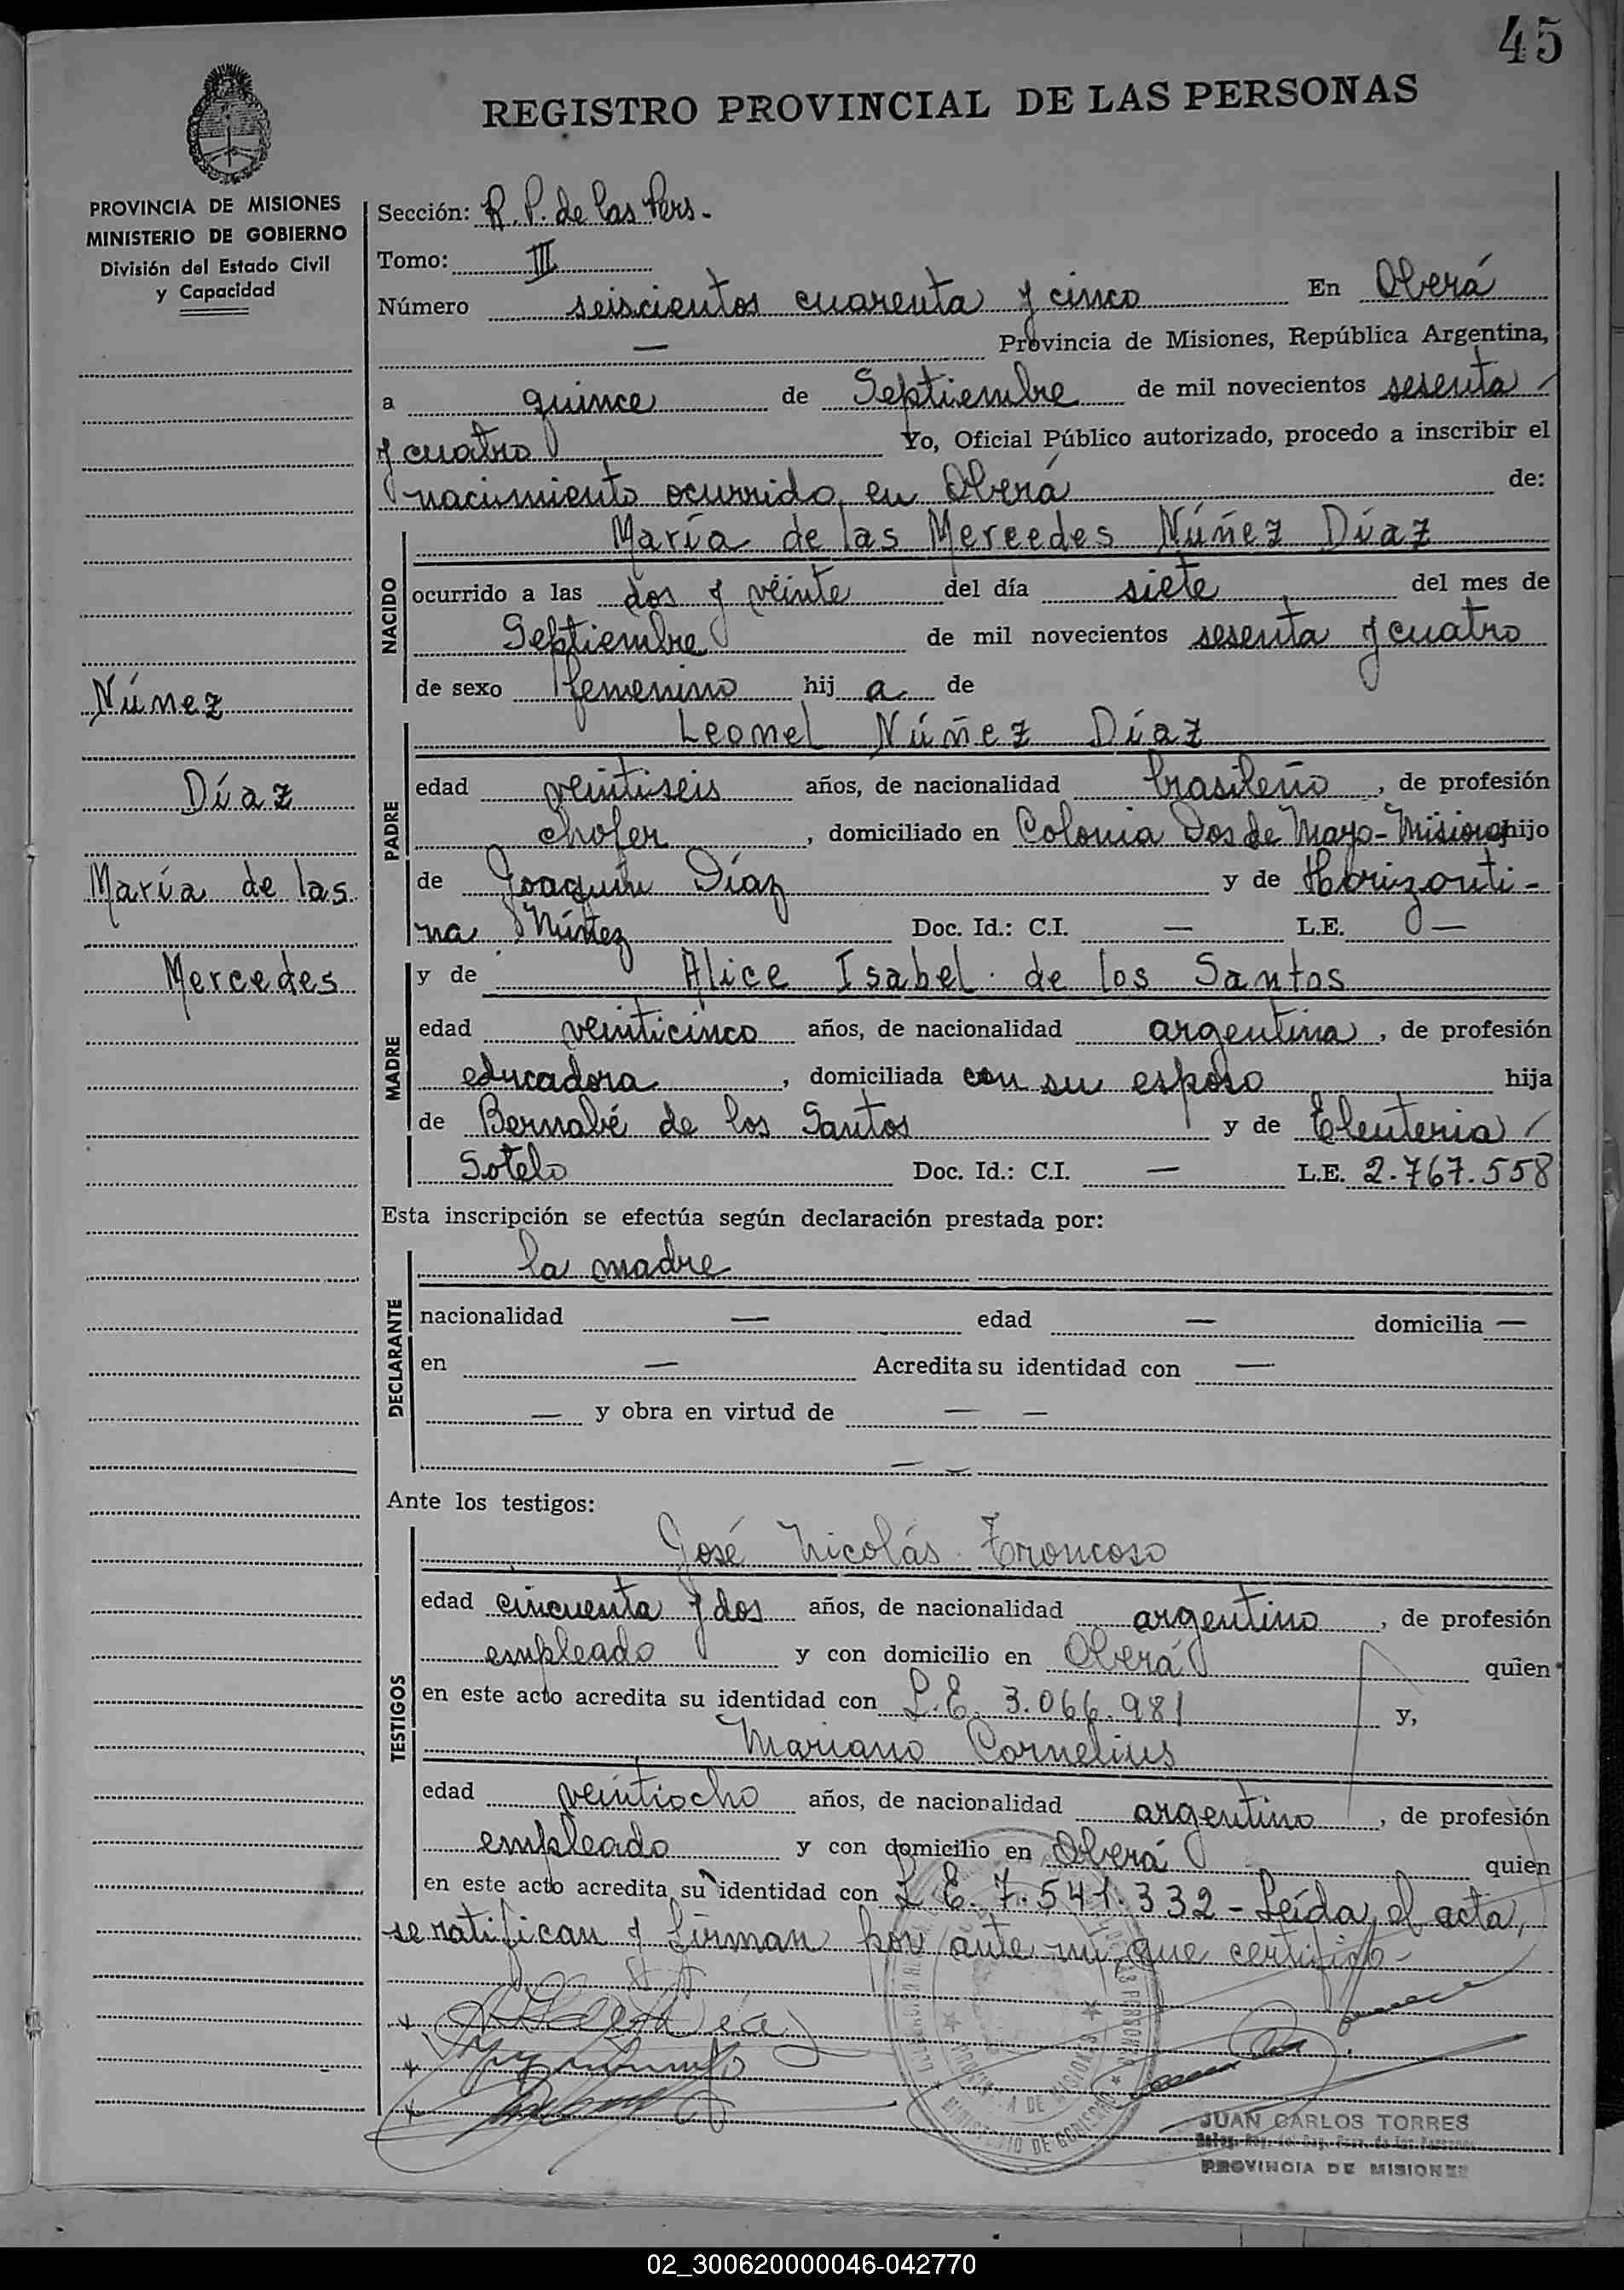 45
REGISTRO PROVINCIAL DE LAS PERSONAS
PROVINCIA DE MISIONES
MINISTERIO DE GOBIERNO
División del Estado Civil
y Capacidad
Núñez
Díaz
María de las
Mercedes
Sección: R. P. de las Pers.
Tomo: III
Número seiscientos cuarenta y cinco En Oberá
— Provincia de Misiones, República Argentina,
a quince de Septiembre de mil novecientos sesenta
y cuatro Yo, Oficial Público autorizado, procedo a inscribir el
nacimiento ocurrido en Oberá de:
NACIDO
María de las Mercedes Núñez Díaz
ocurrido a las dos y veinte del día siete del mes de
Septiembre de mil novecientos sesenta y cuatro
de sexo femenino hij a de
PADRE
Leonel Núñez Díaz
edad veintiseis años, de nacionalidad brasileño, de profesión
chofer, domiciliado en Colonia Dos de Mayo - Misiones hijo
de Joaquín Díaz y de Horizonti-
na Núñez Doc. Id.: C.I. — L.E. —
MADRE
y de Alice Isabel de los Santos
edad veinticinco años, de nacionalidad argentina, de profesión
educadora, domiciliada con su esposo hija
de Bernabé de los Santos y de Eleuteria
Sotelo Doc. Id.: C.I. — L.E. 2.767.558
Esta inscripción se efectúa según declaración prestada por:
DECLARANTE
la madre
nacionalidad — edad — domicilia —
en — Acredita su identidad con —
— y obra en virtud de — —
— —
Ante los testigos:
TESTIGOS
José Nicolás Troncoso
edad cincuenta y dos años, de nacionalidad argentino, de profesión
empleado y con domicilio en Oberá quien
en este acto acredita su identidad con L.E. 3.066.981 y,
Mariano Cornelius
edad veintiocho años, de nacionalidad argentino, de profesión
empleado y con domicilio en Oberá quien
en este acto acredita su identidad con L.E. 7.541.332 - Leída el acta,
se ratifican y firman por ante mi, que certifico -
PROVINCIA DE MISIONES
MINISTERIO DE GOBIERNO
JUAN CARLOS TORRES
PROVINCIA DE MISIONES
02_300620000046-042770